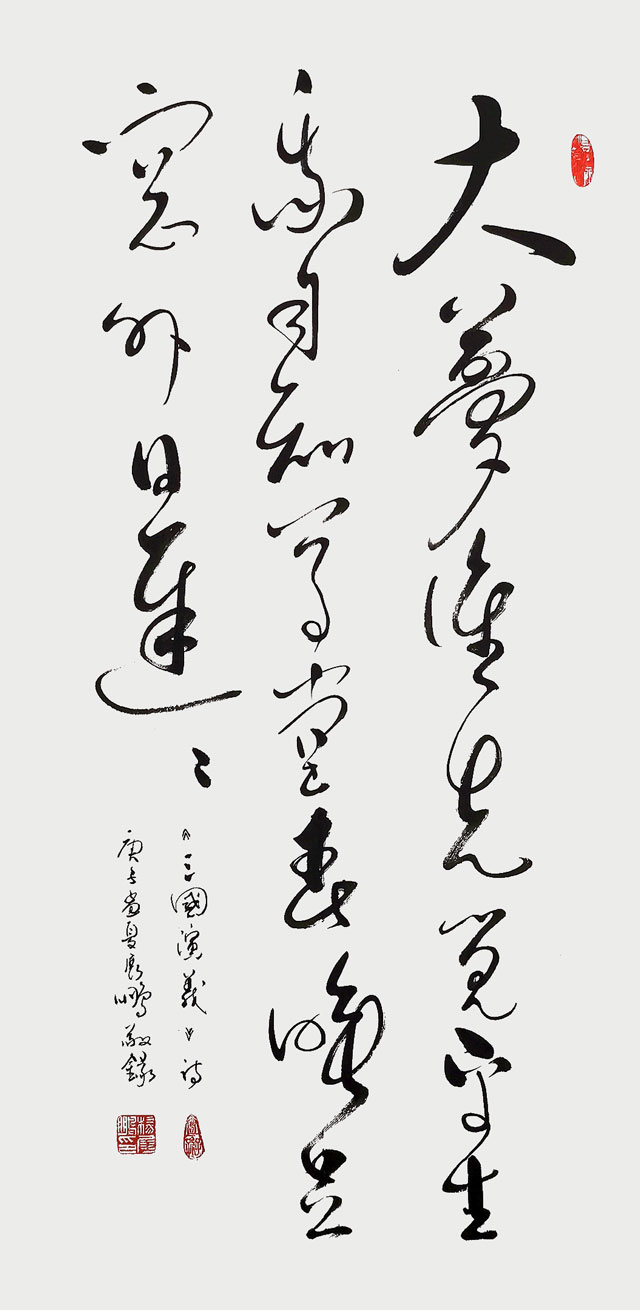 大夢誰先覺平生
我自知草堂春睡足
窗外日遲〻
《三國演義》詩
庚子夏鵬敬錄